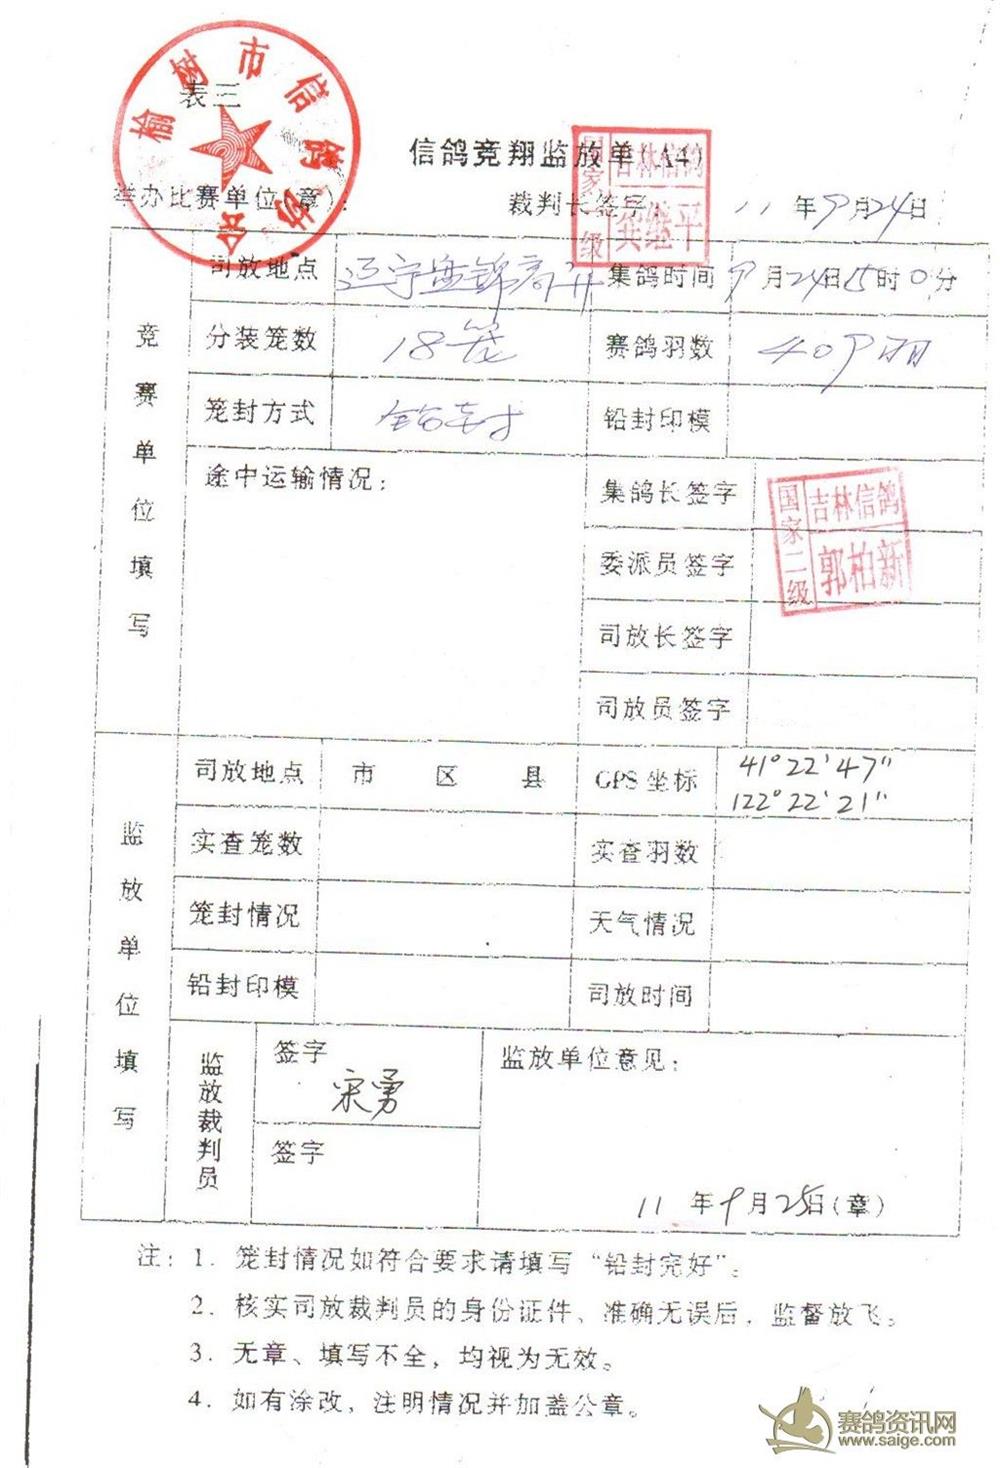 榆树市信鸽协会
表三
信鸽竞翔监放单(A4)
举办比赛单位(章): 裁判长签字: 11年9月24日
国家 级 吉林信鸽 继平
竞赛单位填写
司放地点 辽宁盘锦高升 集鸽时间 9月24日15时0分
分装笼数 18笼 赛鸽羽数 409羽
笼封方式 铅封 铅封印模
途中运输情况: 集鸽长签字
国家二级 吉林信鸽 郭柏新
委派员签字
司放长签字
司放员签字
监放单位填写
司放地点 市 区 县 GPS坐标 41°22'47"
122°22'21"
实查笼数 实查羽数
笼封情况 天气情况
铅封印模 司放时间
监放裁判员 签字 宋勇 监放单位意见:
签字
11年9月25日(章)
注: 1. 笼封情况如符合要求请填写“铅封完好”。
2. 核实司放裁判员的身份证件、准确无误后，监督放飞。
3. 无章、填写不全，均视为无效。
4. 如有涂改，注明情况并加盖公章。
赛鸽资讯网
www.saige.com